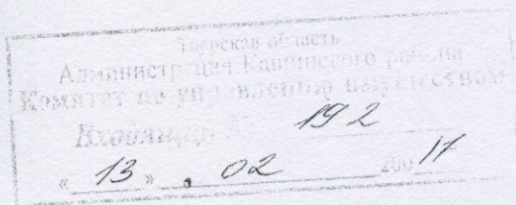 Тверская область
Администрация Кашинского района
Комитет по управлению имуществом
Входящий № 192
« 13 » . 02 200 17